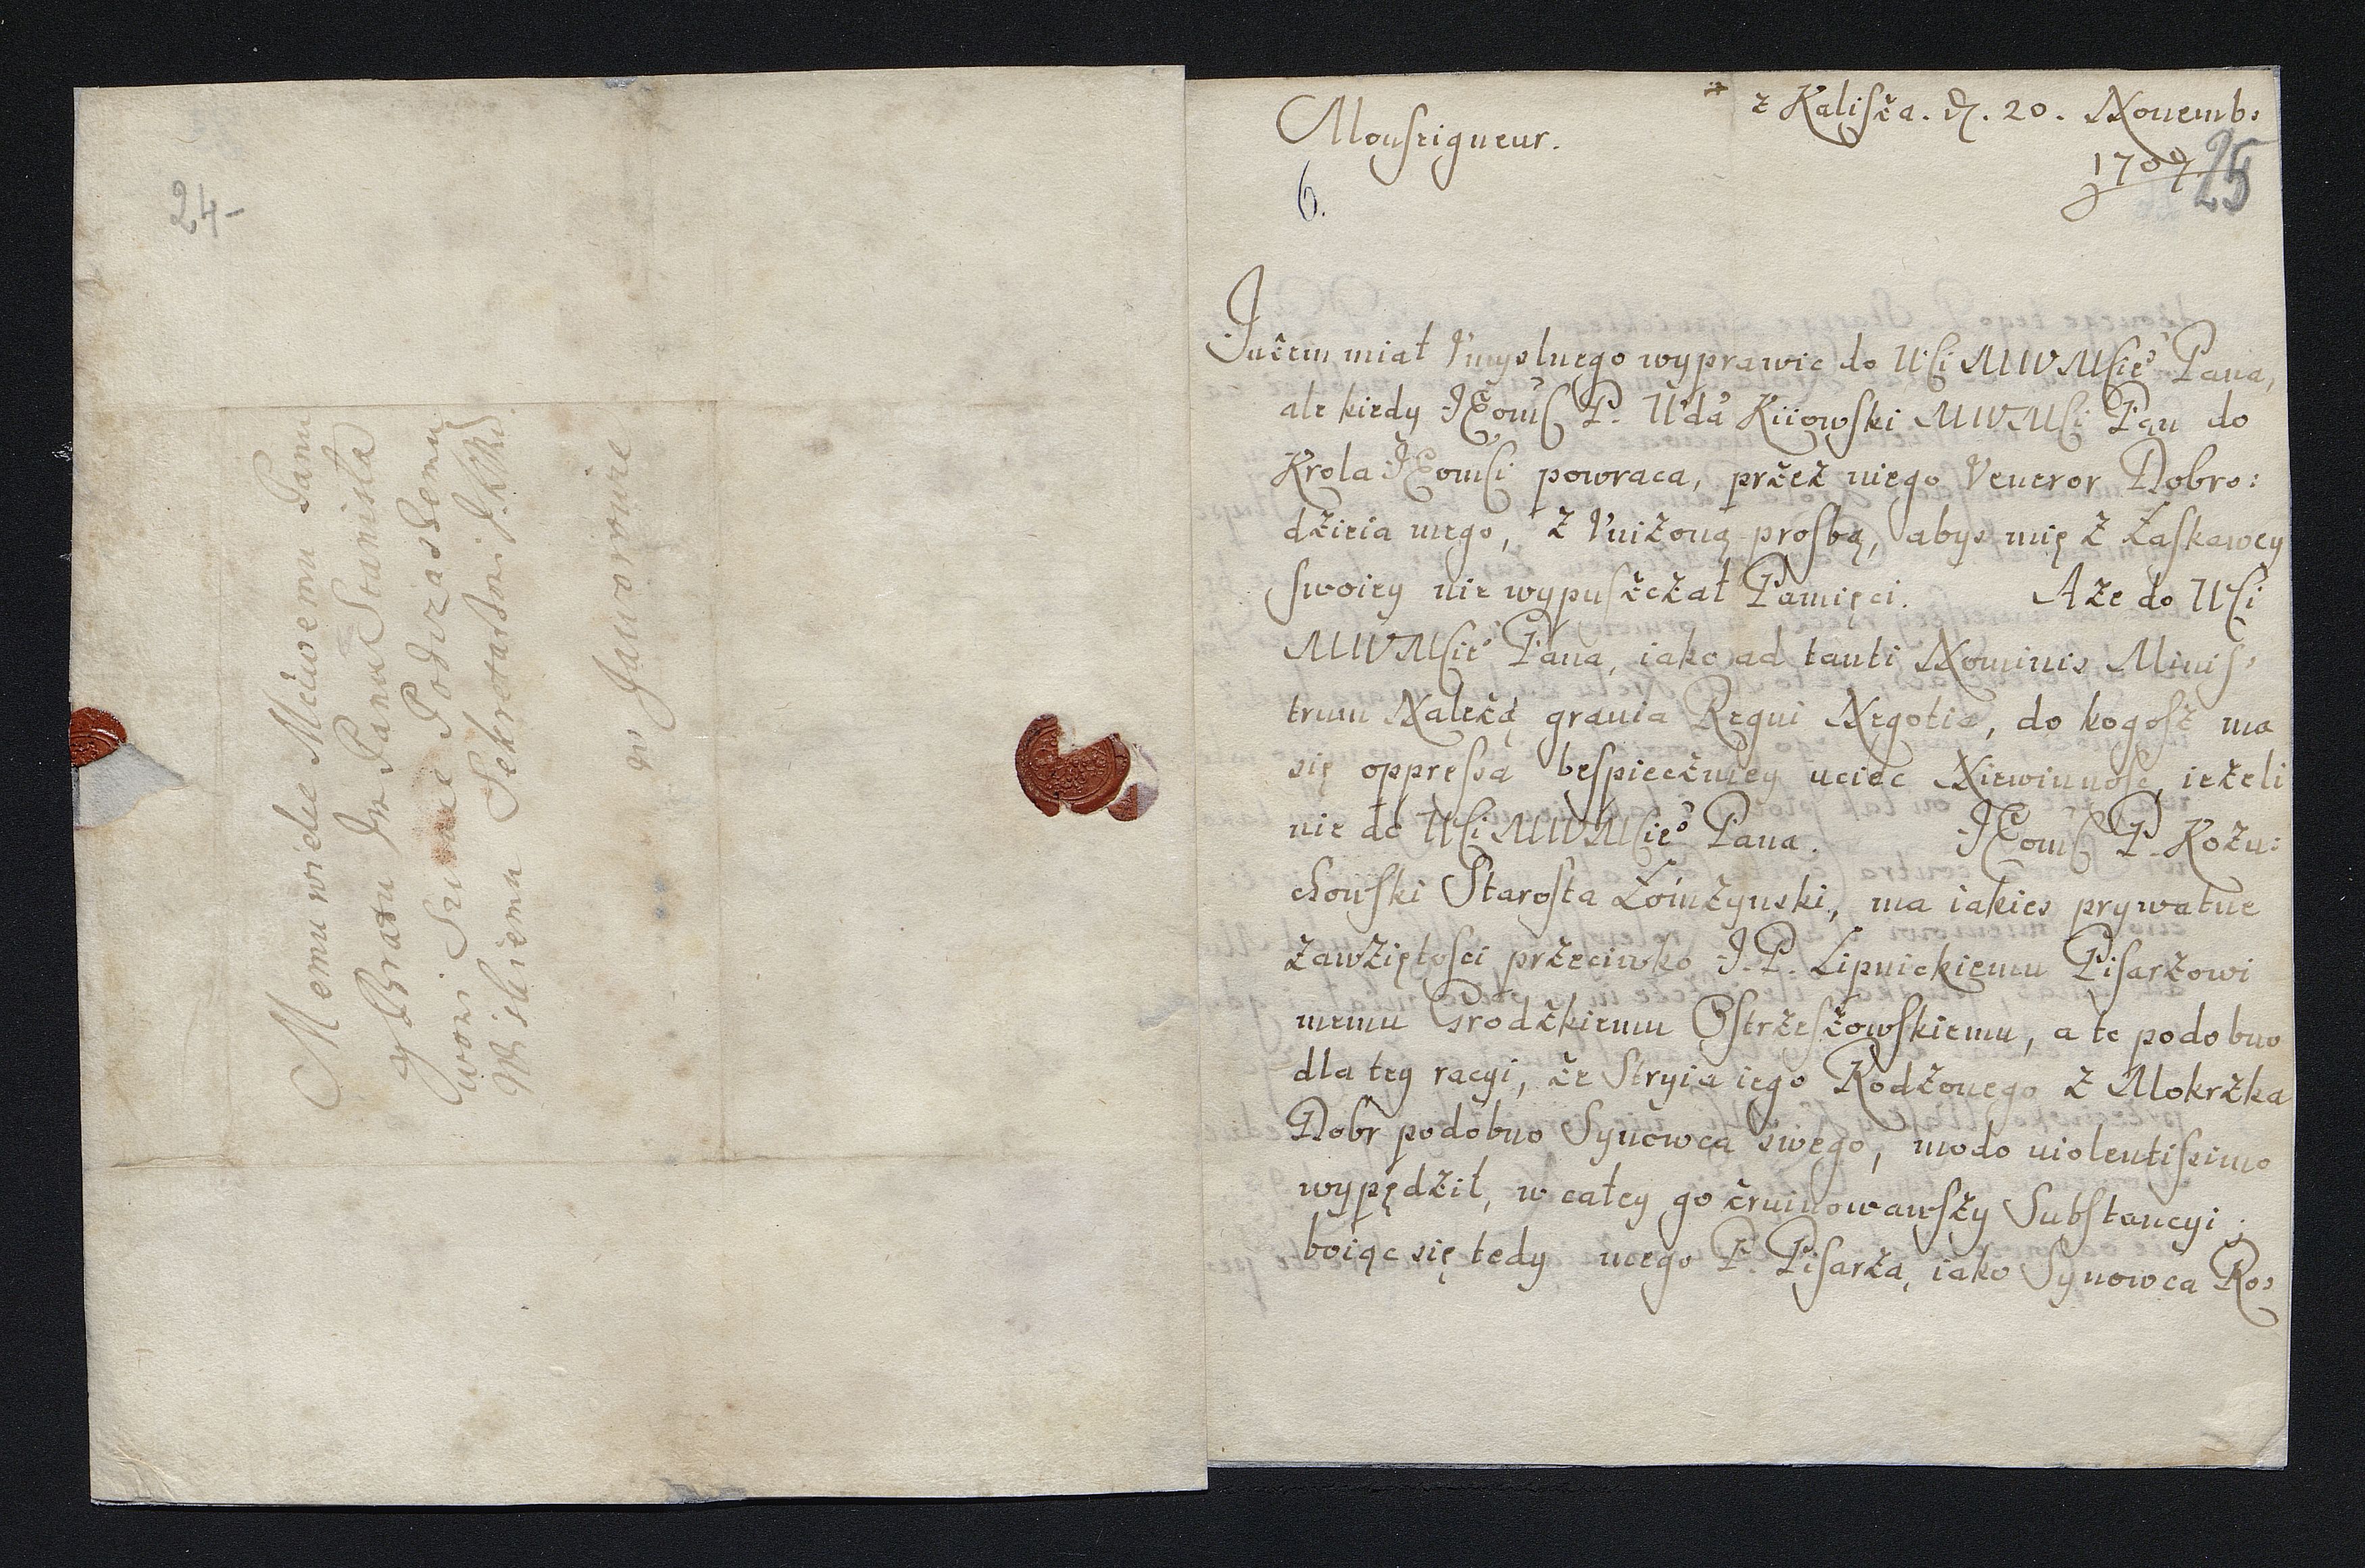 24-
Memu wielce Mćiwemu Panu
y Bratu Je Panu Stanisła
wowi Szumae Podczaszemu
Wislickiemu Sekretarzowi J. K. Mći
w Jaworowie
z Kalisża. d. 20. Nouemb:
Monseigneur. 1707
25
6.
Jużem miał Vmyslnego wyprawic do WSci MWMSćieº Pana,
ale kiedy JEomSć P. Wda Kiiowski MWMSći Pan do
Krola JEomSći powraca, przez niego Veneror Dobro:
dzieia mego, z Vniżoną prosbą, abys mię z Łaskawey
swoiey nie wypuszczał Pamięci. A że do WSći
MWMSćieº Pana, iako ad tanti Nominis Minis:
trum Należą grauia Regni Negotia, do kogosz ma
się oppressa bespiecżniey uciec Niewinność, ieżeli
nie do WSći MWMSćieº Pana. JEomSć P. Kożu:
chowski Starosta Łomżynski, ma iakies prywatne
zawziętosci przeciwko J. P. Lipnickiemu Pisarzowi
memu Grodzkiemu Ostrzeszowskiemu, a to podobno
dla tey racyi, że Stryia iego Rodzonego z Mokrzka
Dobr podobno Synowca swego, modo uiolentissimo
wypędził, w całey go zruinowawszy Substancyi;
boiąc się tedy mego P. Pisarza, iako Synowca Ro: